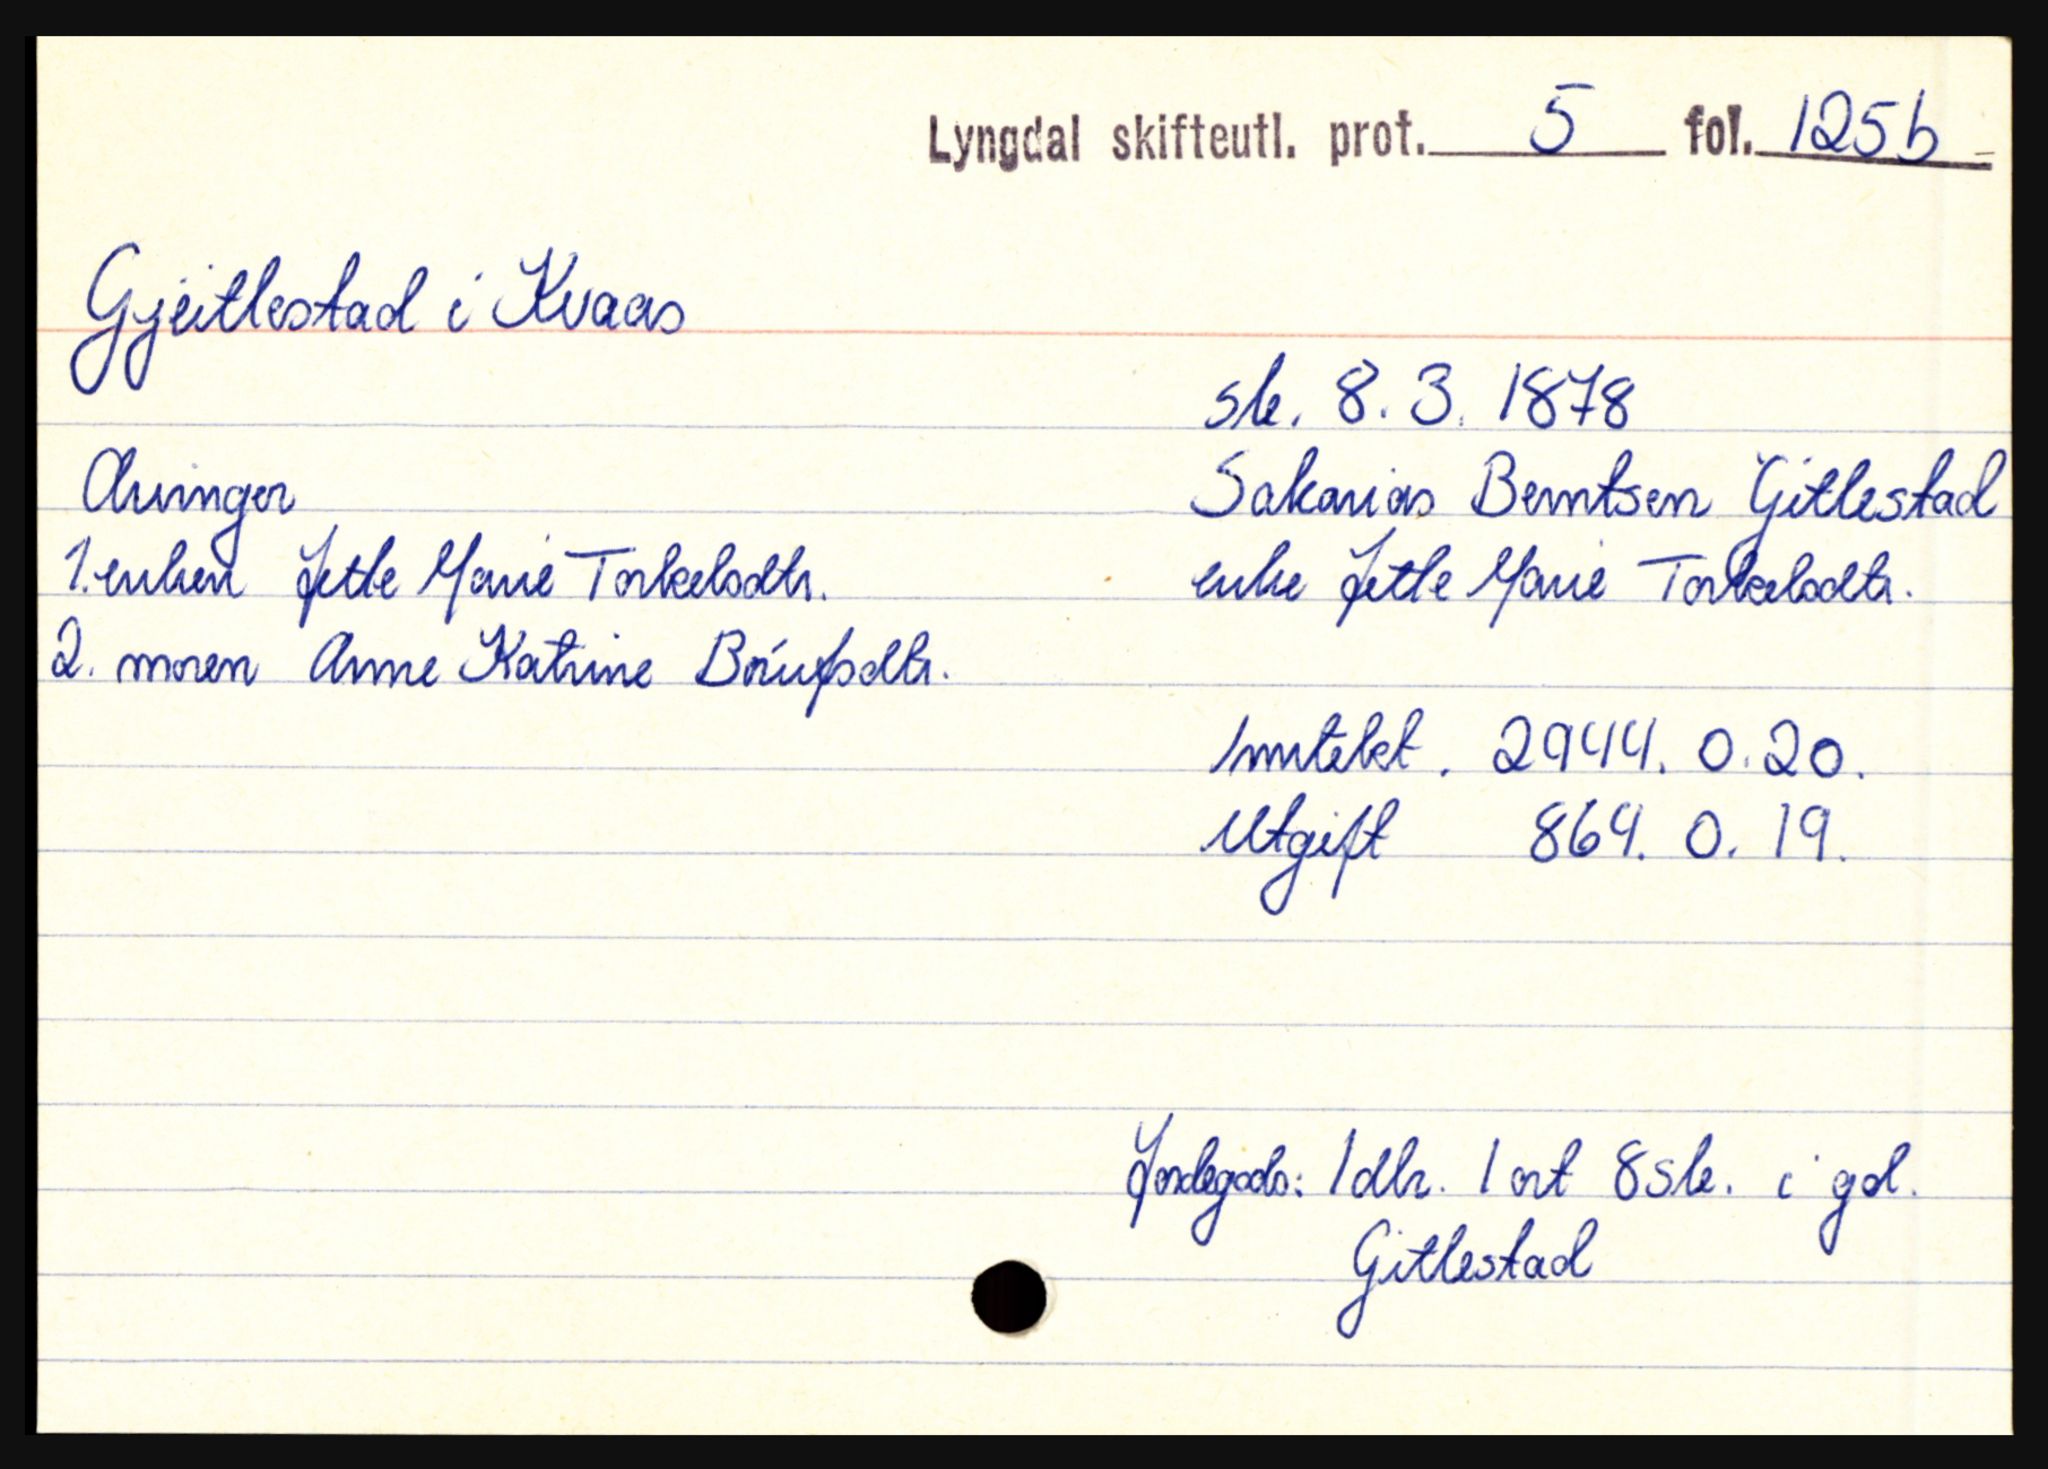 Lyngdal skifteutl. prot. 5 fol. 125b
Gjeitlestad i Kvaas
sk. 8. 3. 1878
Arvinger
Sakarias Berntsen Gitlestad
1. enken Jetle Marie Torkelsdtr.
enke Jetle Marie Torkelsdtr.
2. moren Anne Katrine
Inntekt. 2944. 0. 20.
Utgift 864. 0. 19.
Jordegods: 1 dlr. 1 ort 8 sk. i gd.
Gitlestad